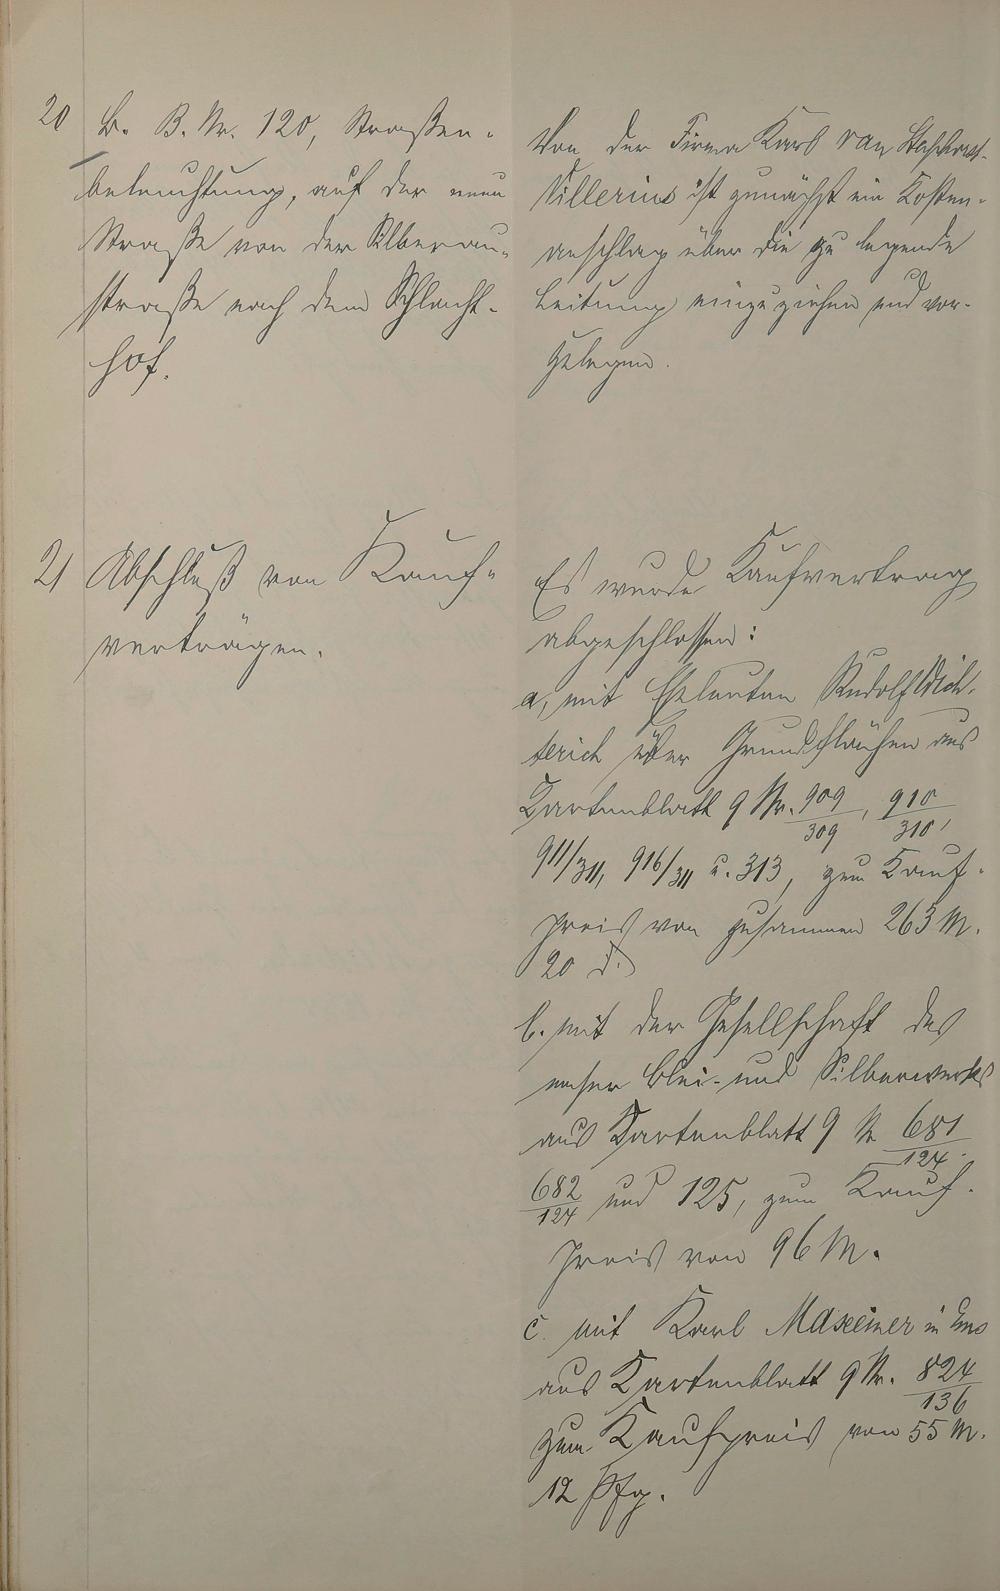 20 B. B. Nr. 120, Straßen-
beleuchtung, auf der neuen
Straße von der Silberau-
straße nach dem Schlacht-
hof.
Von der Firma Karl van
Villerius ist zunächst ein Kosten-
anschlag über die zu legende
Leitung einzuziehen und vor-
zulegen.
21 Abschluß von Kauf-
verträgen.
Es wurde Kaufvertrag
abgeschlossen:
a, mit Eheleuten Rudolf
über Grundflächen aus
Kartenblatt 9 Nr. 909/309, 910/310,
911/311, 916/311 u. 313, zum Kauf-
preis von zusammen 263 M.
20 d.
b. mit der Gesellschaft des
emser Blei- und Silberwerks
aus Kartenblatt 9 Nr 681/124.
682/124 und 125, zum Kauf-
preis von 96 M.
c. mit Karl in Ems
aus Kartenblatt 9 Nr. 824/136
zum Kaufpreis von 55 M.
12 Pfg.